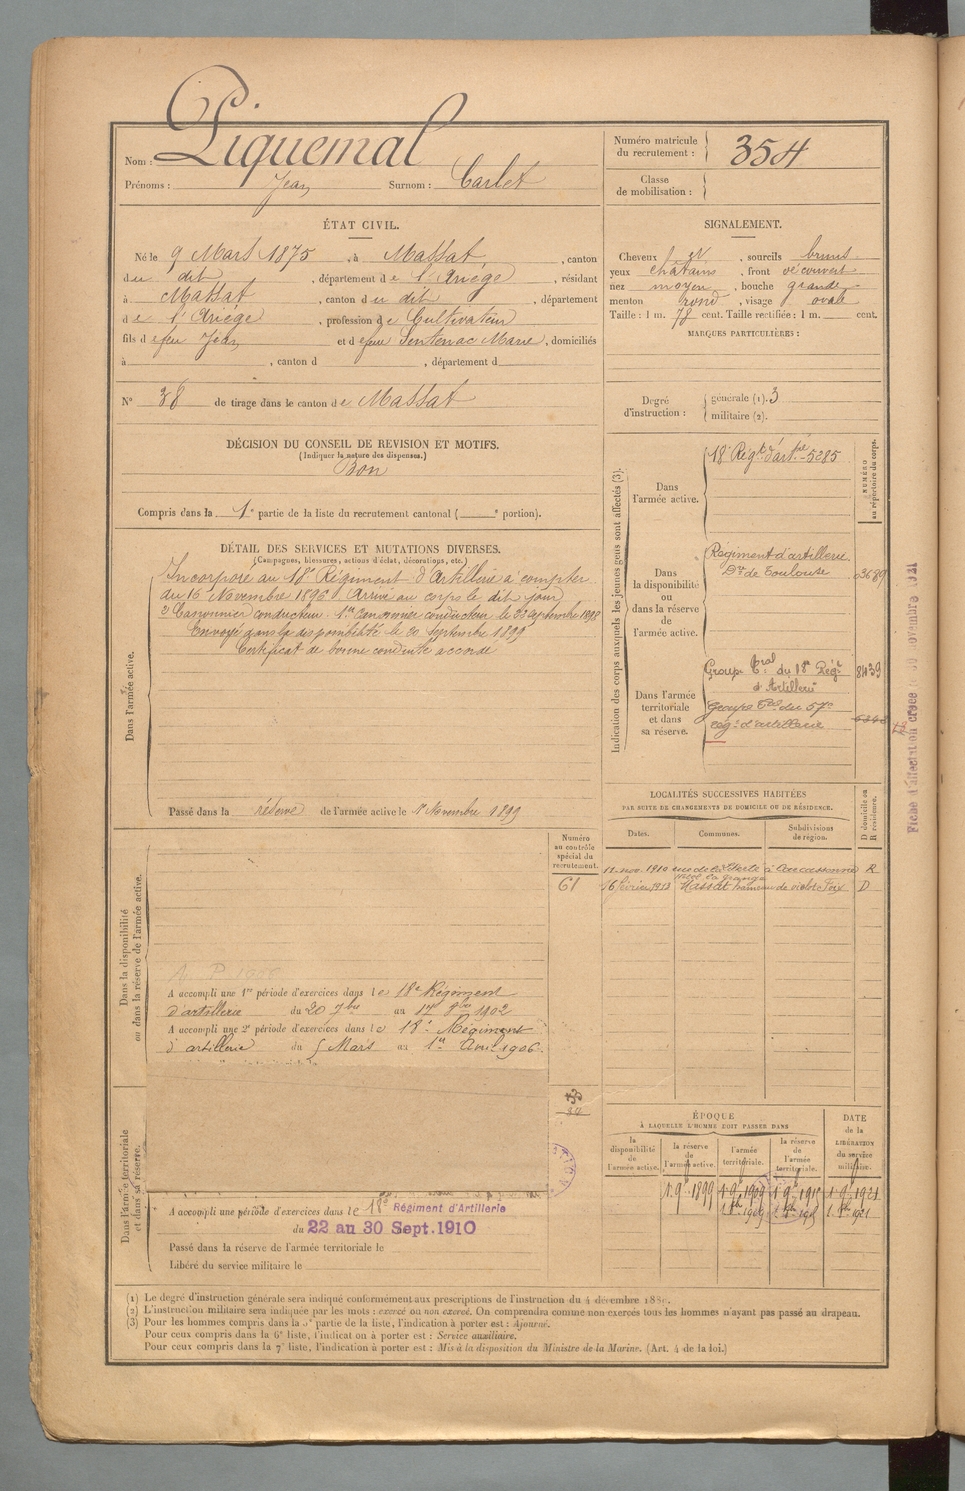 Nom : Piquemal
Prénoms : Jean Surnom : Carlet
Numéro matricule du recrutement : 354
Classe de mobilisation :
ÉTAT CIVIL.
Né le 9 Mars 1875, à Massat, canton
du dit, département de l'Ariège, résidant
à Massat, canton du dit, département
de l'Ariège, profession de Cultivateur
fils de feu Jean et de feue Sentenac Marie, domiciliés
à , canton d , département d
N° 38 de tirage dans le canton de Massat
DÉCISION DU CONSEIL DE REVISION ET MOTIFS.
(Indiquer la nature des dispenses.)
Bon
Compris dans la 1e partie de la liste du recrutement cantonal ( e portion).
SIGNALEMENT.
Cheveux et, sourcils bruns
yeux châtains, front découvert
nez moyen, bouche grande
menton rond, visage ovale
Taille : 1 m. 78 cent. Taille rectifiée : 1 m. cent.
MARQUES PARTICULIÈRES :
Degré d'instruction :
générale (1). 3
militaire (2).
DÉTAIL DES SERVICES ET MUTATIONS DIVERSES.
(Campagnes, blessures, actions d'éclat, décorations, etc.)
Dans l'armée active.
Incorporé au 18e Régiment d'Artillerie à compter
du 16 Novembre 1896. Arrivé au corps le dit jour
2e Canonnier conducteur. 1er Canonnier conducteur le 23 septembre 1898
Envoyé dans la disponibilité le 20 septembre 1899
Certificat de bonne conduite accordé
Passé dans la réserve de l'armée active le 1er Novembre 1899
Indication des corps auxquels les jeunes gens sont affectés (3).
NUMÉRO au répertoire du corps.
Dans l'armée active.
18e Régt d'artrie 5385
Dans la disponibilité ou dans la réserve de l'armée active.
Régiment d'artillerie
Don de Toulouse 03689
Dans l'armée territoriale et dans sa réserve.
Groupe Tral du 18e Régt 8439
d'Artillerie
Groupe Tal du 57e
régt d'artillerie
Fiche d'affectation créée le novembre
LOCALITÉS SUCCESSIVES HABITÉES
PAR SUITE DE CHANGEMENTS DE DOMICILE OU DE RÉSIDENCE.
Dates. Communes. Subdivisions de région. D domicile ou R résidence.
11 nov. 1910 rue de à Carcassonne R
16 février 1913 Massat hameau de Foix D
Numéro au contrôle spécial du recrutement.
61
Dans la disponibilité ou dans la réserve de l'armée active.
A accompli une 1re période d'exercices dans le 18e Régiment
d'artillerie du 20 7bre au 17 8bre 1902
A accompli une 2e période d'exercices dans le 18e Régiment
d'artillerie du 5 Mars au 1er Avril 1906
Dans l'armée territoriale et dans sa réserve.
A accompli une période d'exercices dans le 18e Régiment d'Artillerie
du 22 au 30 Sept. 1910
Passé dans la réserve de l'armée territoriale le
Libéré du service militaire le
ÉPOQUE
À LAQUELLE L'HOMME DOIT PASSER DANS
la disponibilité de l'armée active.
la réserve de l'armée active.
l'armée territoriale.
la réserve de l'armée territoriale.
DATE de la LIBÉRATION du service militaire.
1. 9bre 1899 1. 9bre 1909 1. 9bre 1915 1. 9bre 1921
(1) Le degré d'instruction générale sera indiqué conformément aux prescriptions de l'instruction du 4 décembre 1889.
(2) L'instruction militaire sera indiquée par les mots : exercé ou non exercé. On comprendra comme non exercés tous les hommes n'ayant pas passé au drapeau.
(3) Pour les hommes compris dans la 5e partie de la liste, l'indication à porter est : Ajourné.
Pour ceux compris dans la 6e liste, l'indication à porter est : Service auxiliaire.
Pour ceux compris dans la 7e liste, l'indication à porter est : Mis à la disposition du Ministre de la Marine. (Art. 4 de la loi.)